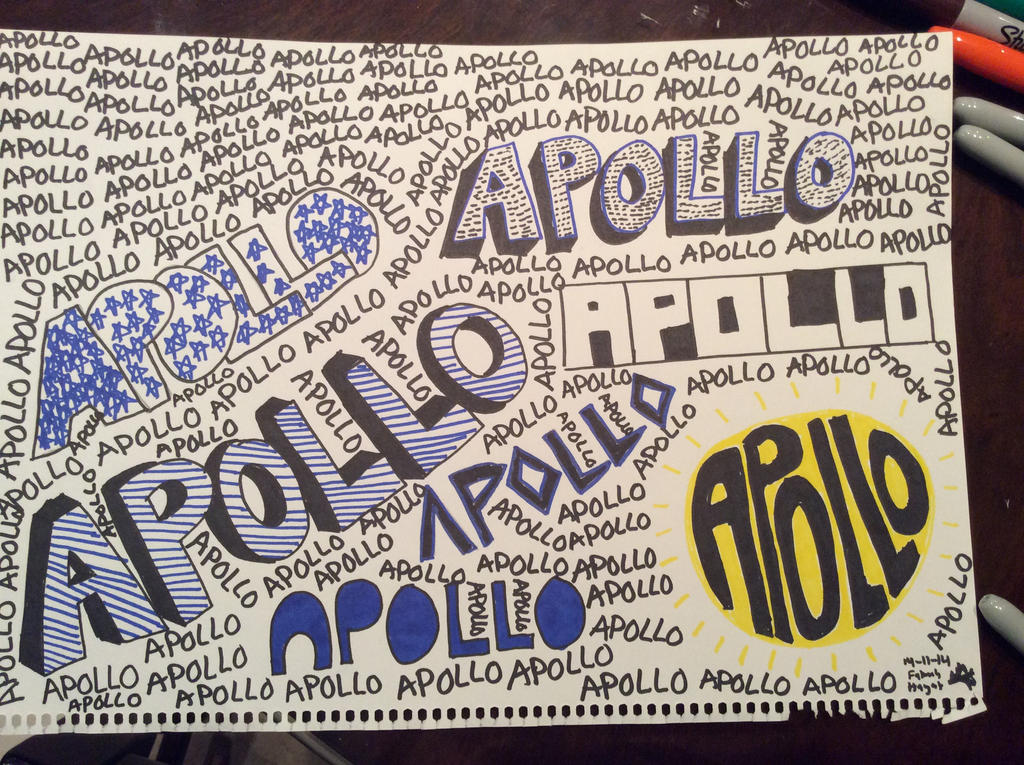 APOLLO APOLLO APOLLO APOLLO APOLLO APOLLO APOLLO
APOLLO APOLLO APOLLO APOLLO APOLLO APOLLO APOLLO APOLLO APOLLO
APOLLO APOLLO APOLLO APOLLO APOLLO APOLLO APOLLO APOLLO APOLLO
APOLLO APOLLO APOLLO APOLLO APOLLO APOLLO APOLLO APOLLO APOLLO
APOLLO APOLLO APOLLO APOLLO APOLLO APOLLO APOLLO APOLLO
APOLLO APOLLO APOLLO APOLLO APOLLO APOLLO APOLLO APOLLO
APOLLO APOLLO APOLLO APOLLO APOLLO APOLLO APOLLO
APOLLO APOLLO APOLLO APOLLO APOLLO APOLLO APOLLO
APOLLO APOLLO APOLLO APOLLO APOLLO APOLLO
APOLLO APOLLO APOLLO APOLLO APOLLO APOLLO APOLLO
APOLLO APOLLO APOLLO APOLLO APOLLO
APOLLO APOLLO APOLLO APOLLO APOLLO APOLLO
APOLLO APOLLO APOLLO APOLLO APOLLO APOLLO
APOLLO APOLLO APOLLO APOLLO APOLLO APOLLO
APOLLO APOLLO APOLLO APOLLO APOLLO
APOLLO APOLLO APOLLO APOLLO APOLLO
APOLLO APOLLO APOLLO APOLLO APOLLO
APOLLO APOLLO APOLLO APOLLO
APOLLO APOLLO APOLLO APOLLO APOLLO
APOLLO APOLLO APOLLO APOLLO APOLLO
APOLLO APOLLO APOLLO APOLLO APOLLO APOLLO APOLLO
APOLLO
14-11-14